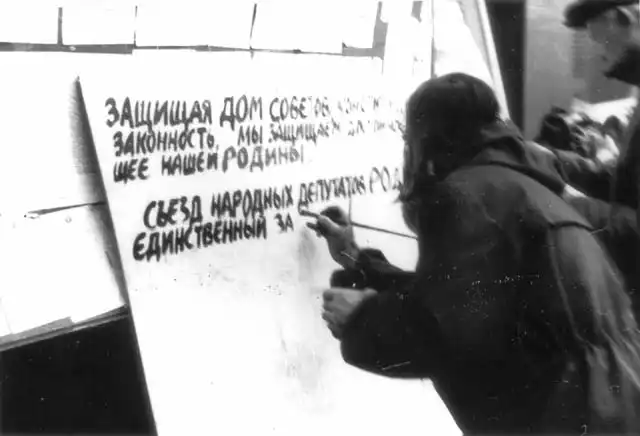 ЗАЩИЩАЯ ДОМ СОВЕТОВ,
ЗАКОННОСТЬ, МЫ ЗАЩИЩАЕМ
ЩЕЕ НАШЕЙ РОДИНЫ
СЪЕЗД НАРОДНЫХ ДЕПУТАТОВ
ЕДИНСТВЕННЫЙ ЗА